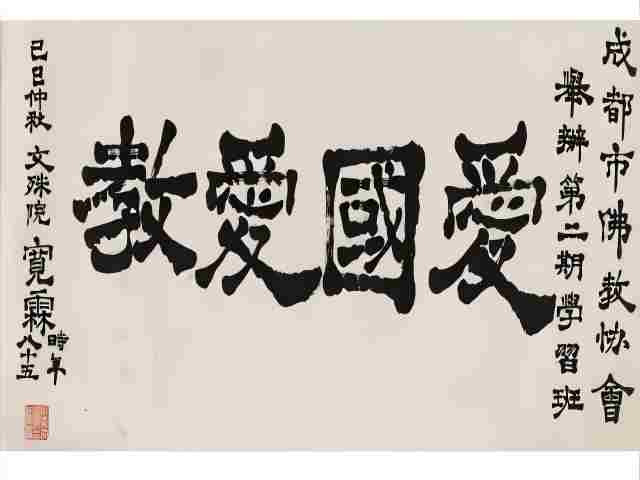 成都市佛教协會
舉辦第二期学習班
愛國愛教
己巳仲秋 文殊院 寬霖
時年
八十五